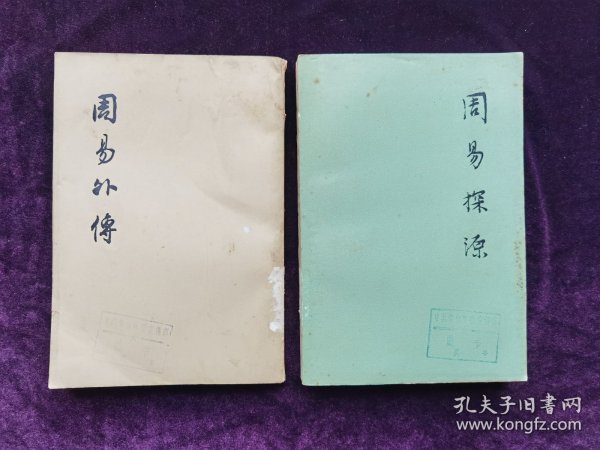 周易外傳
周易探源
孔夫子旧書网
www.kongfz.com